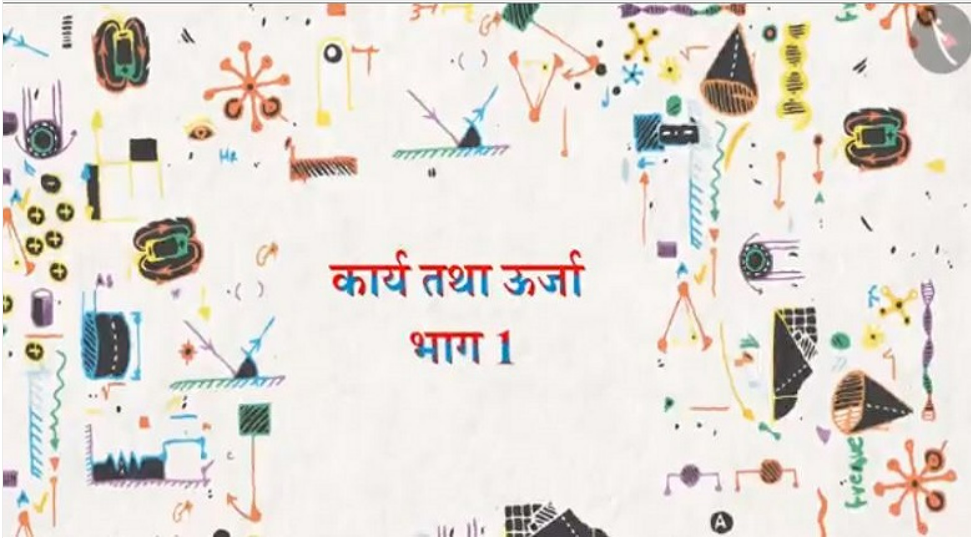 कार्य तथा ऊर्जा
भाग 1
A